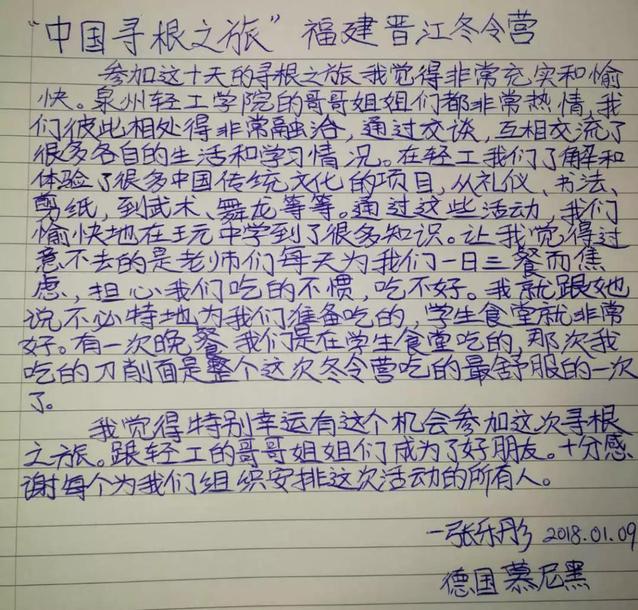 “中国寻根之旅”福建晋江冬令营
参加这十天的寻根之旅我觉得非常充实和愉
快。泉州轻工学院的哥哥姐姐们都非常热情，我
们彼此相处得非常融洽，通过交谈，互相交流了
很多各自的生活和学习情况。在轻工我们了解和
体验了很多中国传统文化的项目，从礼仪、书法、
剪纸，到武术、舞龙等等。通过这些活动，我们
愉快地在玩中学到了很多知识。让我觉得过
意不去的是老师们每天为我们一日三餐而焦
虑，担心我们吃的不惯，吃不好。我就跟她
说不必特地为我们准备吃的，学生食堂就非常
好。有一次晚餐我们是在学生食堂吃的，那次我
吃的刀削面是整个这次冬令营吃的最舒服的一次
了。
我觉得特别幸运有这个机会参加这次寻根
之旅。跟轻工的哥哥姐姐们成为了好朋友。十分感
谢每个为我们组织安排这次活动的所有人。
—张乐彤 2018.01.09
德国慕尼黑